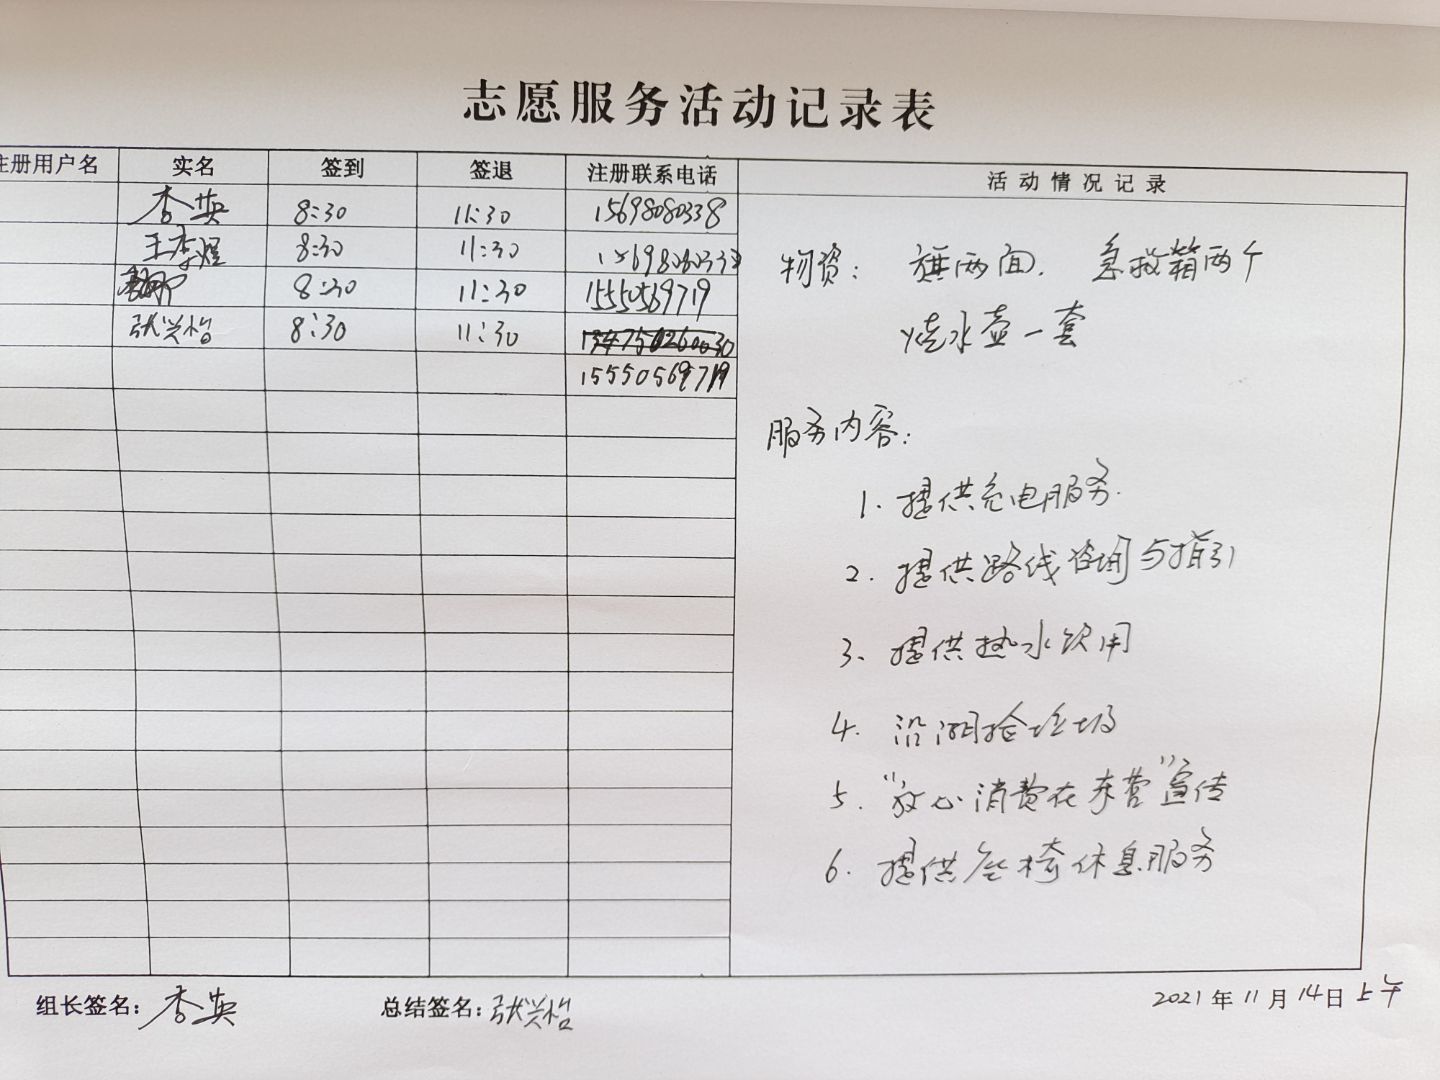 志愿服务活动记录表
注册用户名 实名 签到 签退 注册联系电话 活动情况记录
李英 8:30 11:30 15698080338
王李煜 8:30 11:30 15698080338
8:30 11:30 15550569719
张兴怡 8:30 11:30 134750260030
15550569719
物资: 旗两面. 急救箱两个
烧水壶一套
服务内容:
1. 提供充电服务.
2. 提供路线咨询与指引
3、提供热水饮用
4. 沿湖捡垃圾
5. "放心消费在东营"宣传
6. 提供座椅休息服务
组长签名: 李英 总结签名: 张兴怡 2021年11月14日上午